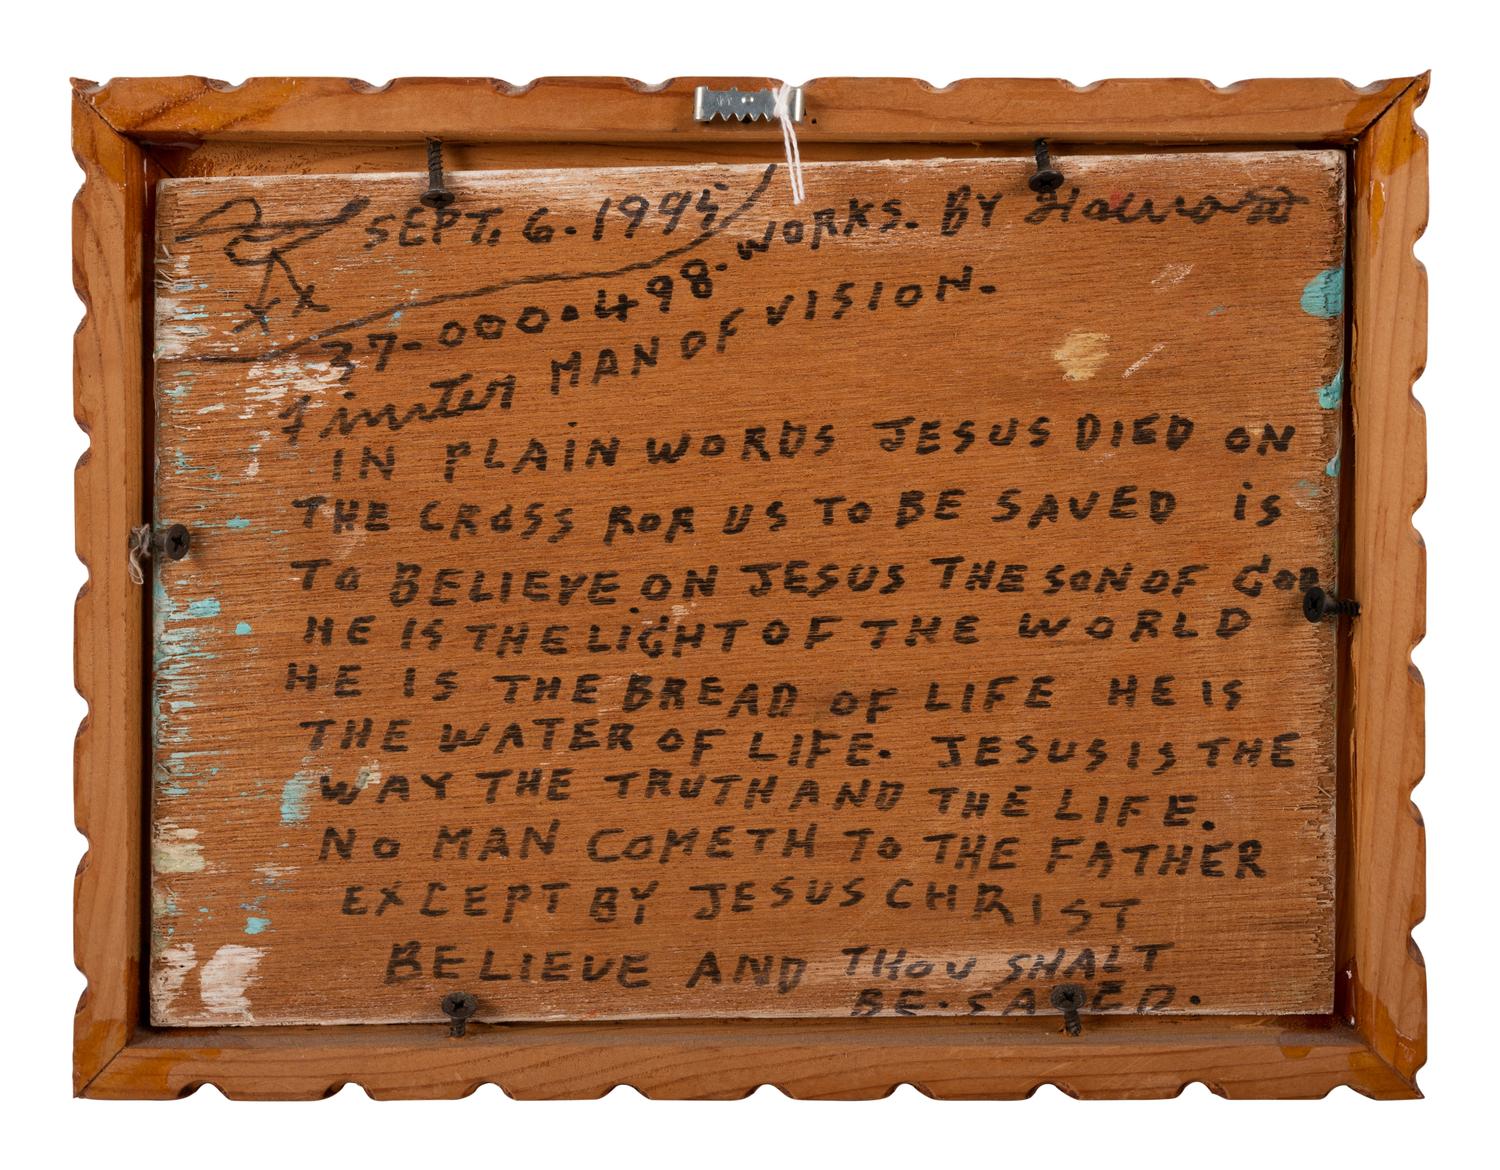 SEPT. 6. 1995
37-000.498. WORKS. BY Howard
Finster MAN OF VISION.
IN PLAIN WORDS JESUS DIED ON
THE CROSS FOR US TO BE SAVED is
To BELIEVE ON JESUS THE SON OF GOD
HE IS THE LIGHT OF THE WORLD
HE IS THE BREAD OF LIFE HE IS
THE WATER OF LIFE. JESUS IS THE
WAY THE TRUTH AND THE LIFE.
NO MAN COMETH TO THE FATHER
EXCEPT BY JESUS CHRIST
BELIEVE AND THOU SHALT
BE. SAVED.